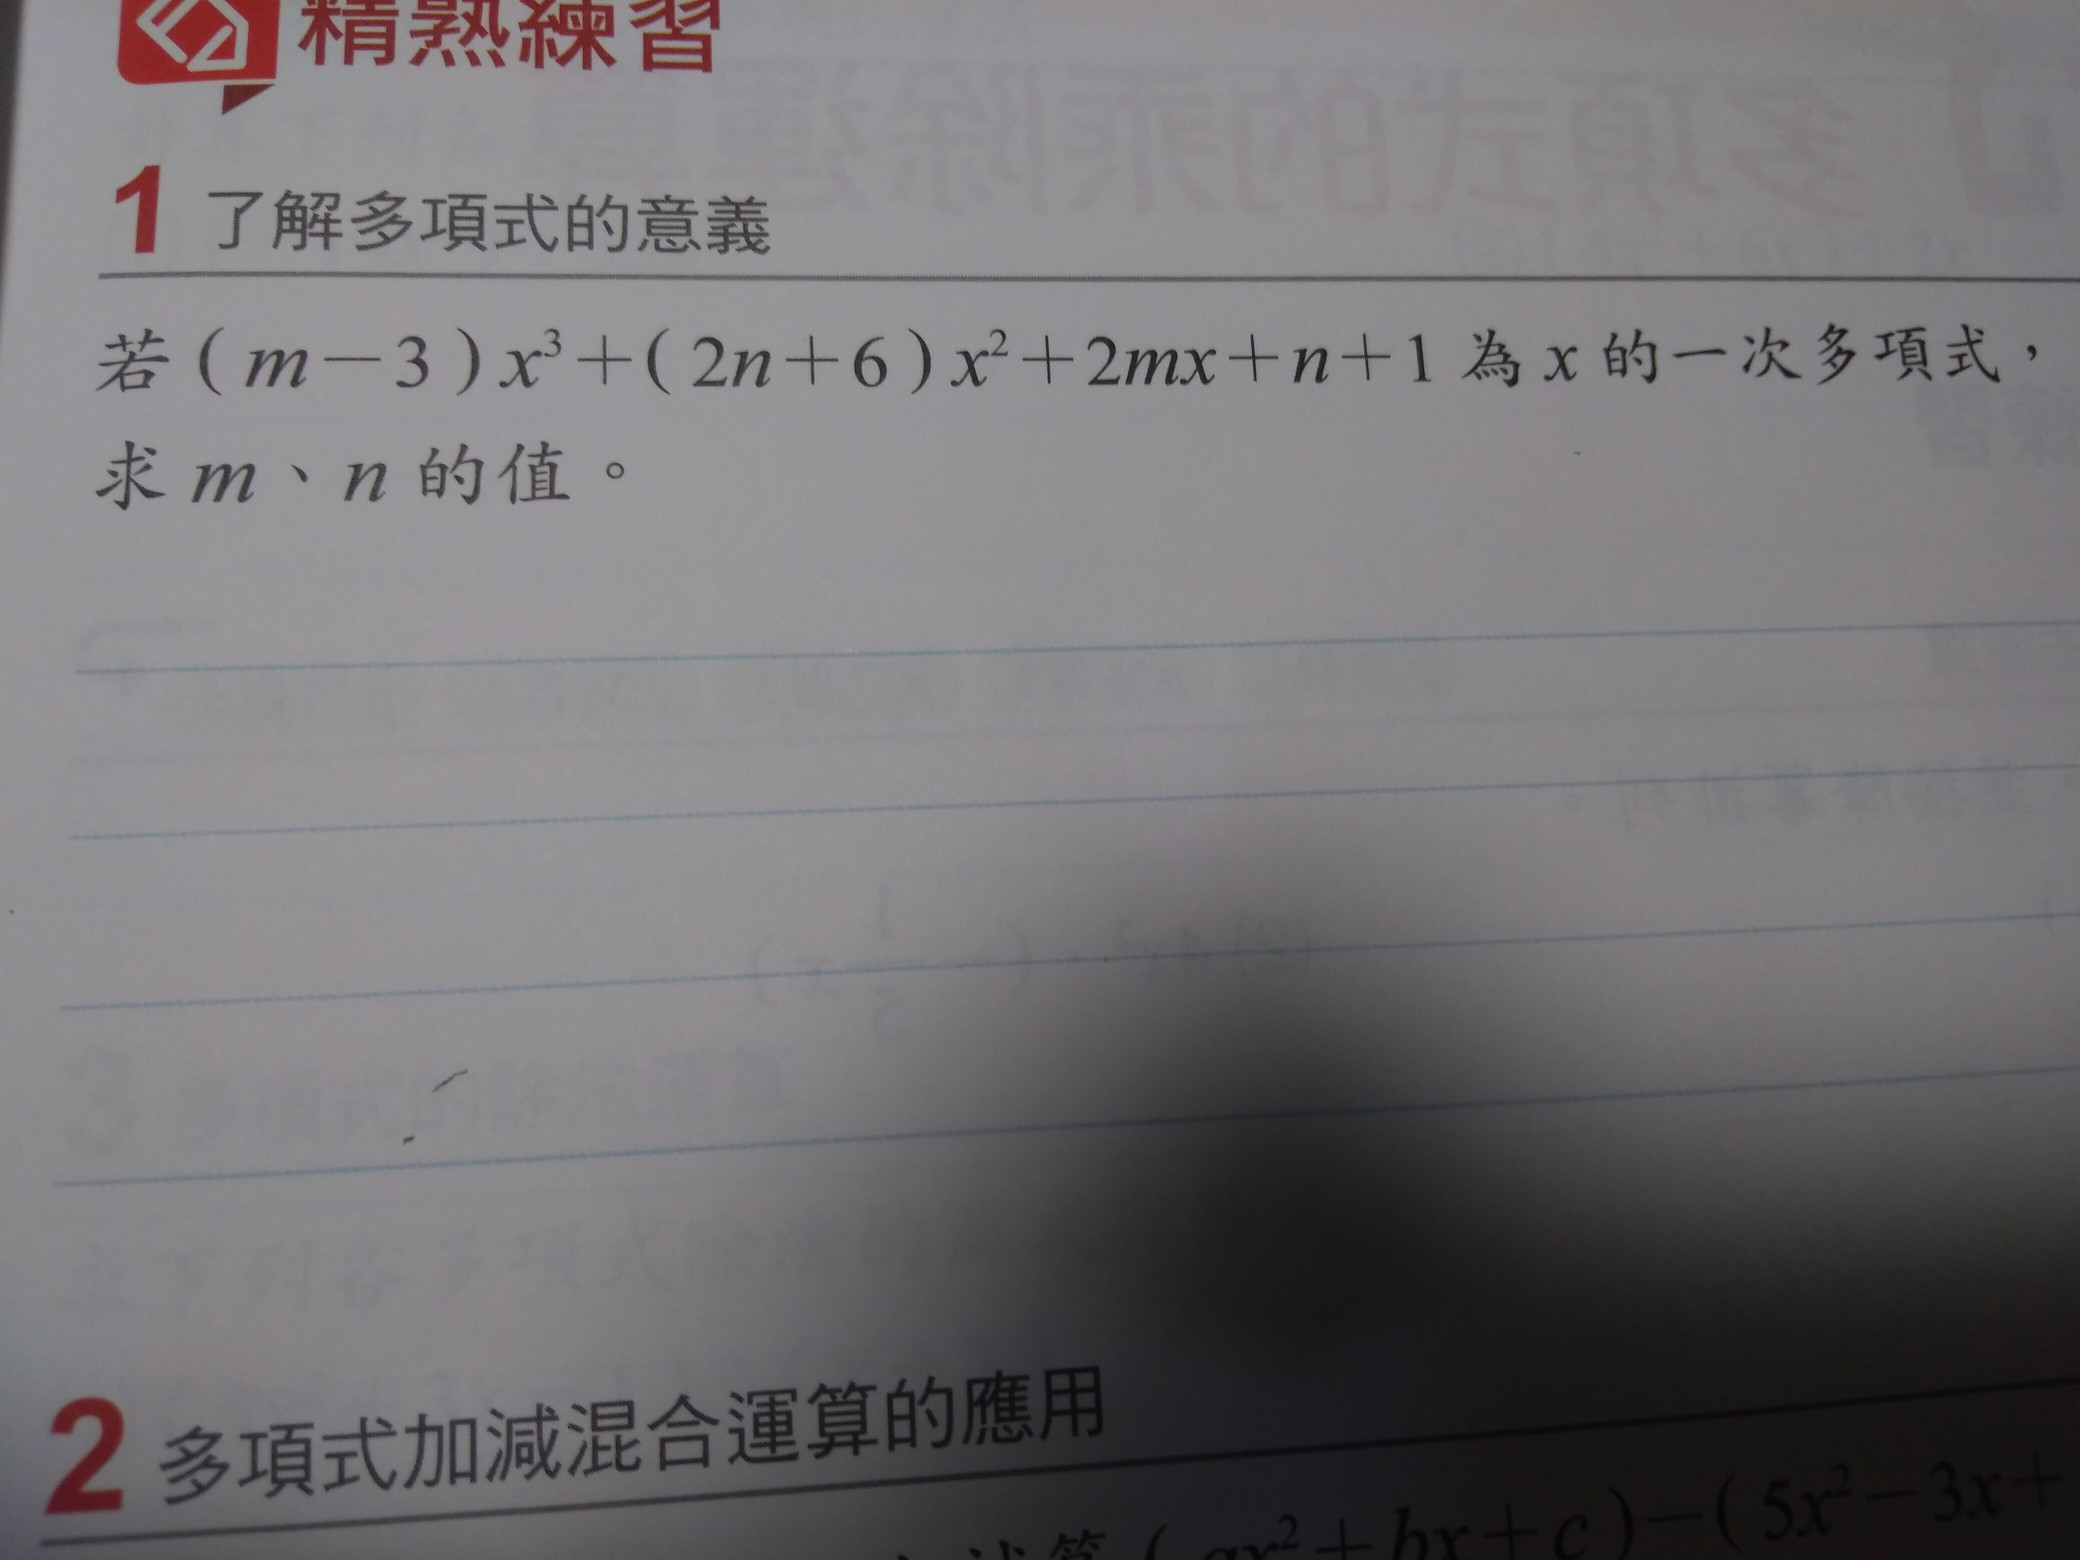 精熟練習
1 了解多項式的意義
若(m-3)x³+(2n+6)x²+2mx+n+1為x的一次多項式，
求m、n的值。
2 多項式加減混合運算的應用
試算(ax²+bx+c)-(5x²-3x+